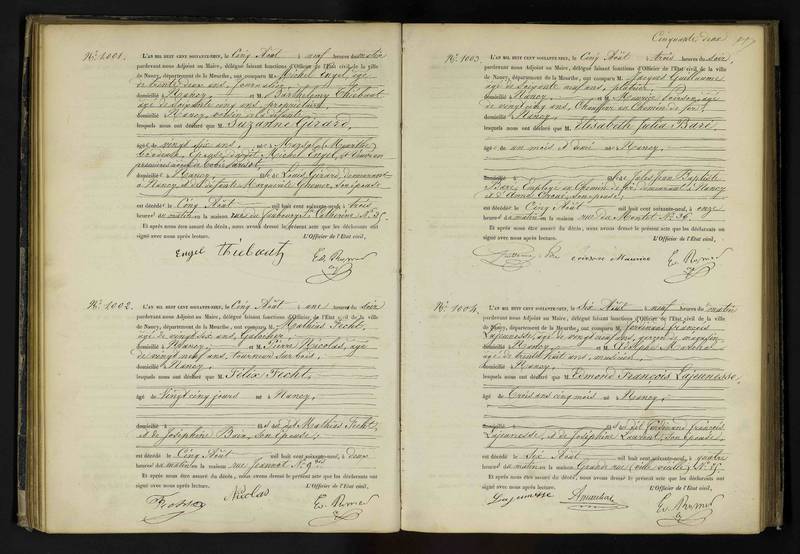 N.º 1001.
L'AN MIL HUIT CENT SOIXANTE-NEUF, le Cinq Août à neuf heures du matin
pardevant nous Adjoint au Maire, délégué faisant fonctions d'Officier de l'État civil de la ville
de Nancy, département de la Meurthe, ont comparu M. Michel Engel, âgé
de trente deux ans, journalier,
domicilié à Nancy, et M. Barthélemy Thiébaut
âgé de soixante cinq ans, propriétaire,
domicilié à Nancy, voisin de la défunte,
lesquels nous ont déclaré que M. Suzanne Girard,
âgée de vingt six ans, née à Marsal (Meurthe)
Épouse dudit Michel Engel, et veuve en
premières noces de
domiciliée à Nancy, fille de Louis Girard, demeurant
à Nancy et de défunte Marguerite son épouse
est décédée le Cinq Août mil huit cent soixante-neuf, à trois
heures du matin en la maison rue du faubourg Ste Catherine N.º 35.
Et après nous être assuré du décès, nous avons dressé le présent acte que les déclarants ont
signé avec nous après lecture. L'Officier de l'État civil,
Engel Thiébaut
N.º 1002.
L'AN MIL HUIT CENT SOIXANTE-NEUF, le Cinq Août à une heure du soir
pardevant nous Adjoint au Maire, délégué faisant fonctions d'Officier de l'État civil de la ville
de Nancy, département de la Meurthe, ont comparu M. Mathias Fecht,
âgé de vingt six ans,
domicilié à Nancy, et M. Pierre Nicolas, âgé
de vingt neuf ans, tourneur sur bois,
domicilié à Nancy,
lesquels nous ont déclaré que M. Félix Fecht,
âgé de Vingt cinq jours né à Nancy,
domicilié à fils dudit Mathias Fecht,
et de Joséphine son épouse,
est décédé le Cinq Août mil huit cent soixante-neuf, à deux
heures du matin en la maison rue Jeannot N.º 9 bis
Et après nous être assuré du décès, nous avons dressé le présent acte que les déclarants ont
signé avec nous après lecture. L'Officier de l'État civil,
Nicolas
Cinquante deux
N.º 1003.
L'AN MIL HUIT CENT SOIXANTE-NEUF, le Cinq Août à trois heures du soir
pardevant nous Adjoint au Maire, délégué faisant fonctions d'Officier de l'État civil de la ville
de Nancy, département de la Meurthe, ont comparu M. Jacques Guillaume
âgé de soixante neuf ans, plâtrier,
domicilié à Nancy, et M. Maurice Voirson, âgé
de vingt cinq ans, Chauffeur au Chemin de fer,
domicilié à Nancy,
lesquels nous ont déclaré que M. Elisabeth Julia Baré,
âgée de un mois et demi née à Nancy,
domicilié à fille de Jules Jean Baptiste
Baré, Employé au Chemin de fer, demeurant à Nancy
et d'Anne son épouse,
est décédée le Cinq Août mil huit cent soixante-neuf, à onze
heures du matin en la maison rue du Montet N.º 36.
Et après nous être assuré du décès, nous avons dressé le présent acte que les déclarants ont
signé avec nous après lecture. L'Officier de l'État civil,
Maurice
N.º 1004.
L'AN MIL HUIT CENT SOIXANTE-NEUF, le Six Août à neuf heures du matin
pardevant nous Adjoint au Maire, délégué faisant fonctions d'Officier de l'État civil de la ville
de Nancy, département de la Meurthe, ont comparu M. Ferdinand François
Lajeunesse, âgé de vingt neuf ans, garçon de magasin
domicilié à Nancy, et M. Adolphe
âgé de trente huit ans, musicien,
domicilié à Nancy,
lesquels nous ont déclaré que M. Edmond François Lajeunesse,
âgé de Trois ans cinq mois né à Nancy,
domicilié à fils dudit Ferdinand François
Lajeunesse, et de Joséphine Laurent, son épouse,
est décédé le Six Août mil huit cent soixante-neuf, à quatre
heures du matin en la maison Grande rue (ville vieille) N.º
Et après nous être assuré du décès, nous avons dressé le présent acte que les déclarants ont
signé avec nous après lecture. L'Officier de l'État civil,
Lajeunesse